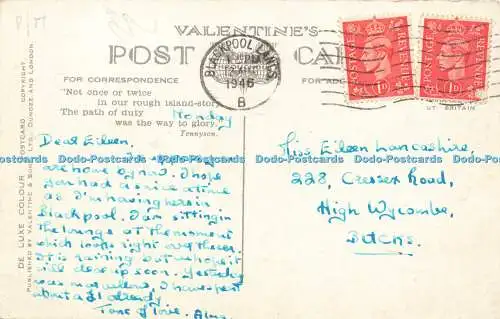 VALENTINE'S
POST CARD
FOR CORRESPONDENCE
FOR ADD
"Not once or twice
in our rough island-story
The path of duty
was the way to glory.
Tennyson.
BLACKPOOL LANCS
1946
B
POSTAGE REVENUE
1D
1D
GT. BRITAIN
DE LUXE COLOUR POSTCARD COPYRIGHT
PUBLISHED BY VALENTINE & SONS LTD., DUNDEE AND LONDON
Monday
Dear Eileen,
are home by now. I hope
you had a nice time
as I'm having here in
Blackpool. I am sitting in
the lounge at the moment
which looks right over the sea.
It is raining but we hope it
will clear up soon. Yesterday
was marvellous, I have spent
about a £1 already
Tons of love.
Miss Eileen Lancashire,
228, Cressex Road,
High Wycombe,
Bucks.
Dodo-Postcards Dodo-Postcards Dodo-Postcards Dodo-Postcards Dodo-Postcards Dodo-Postcards